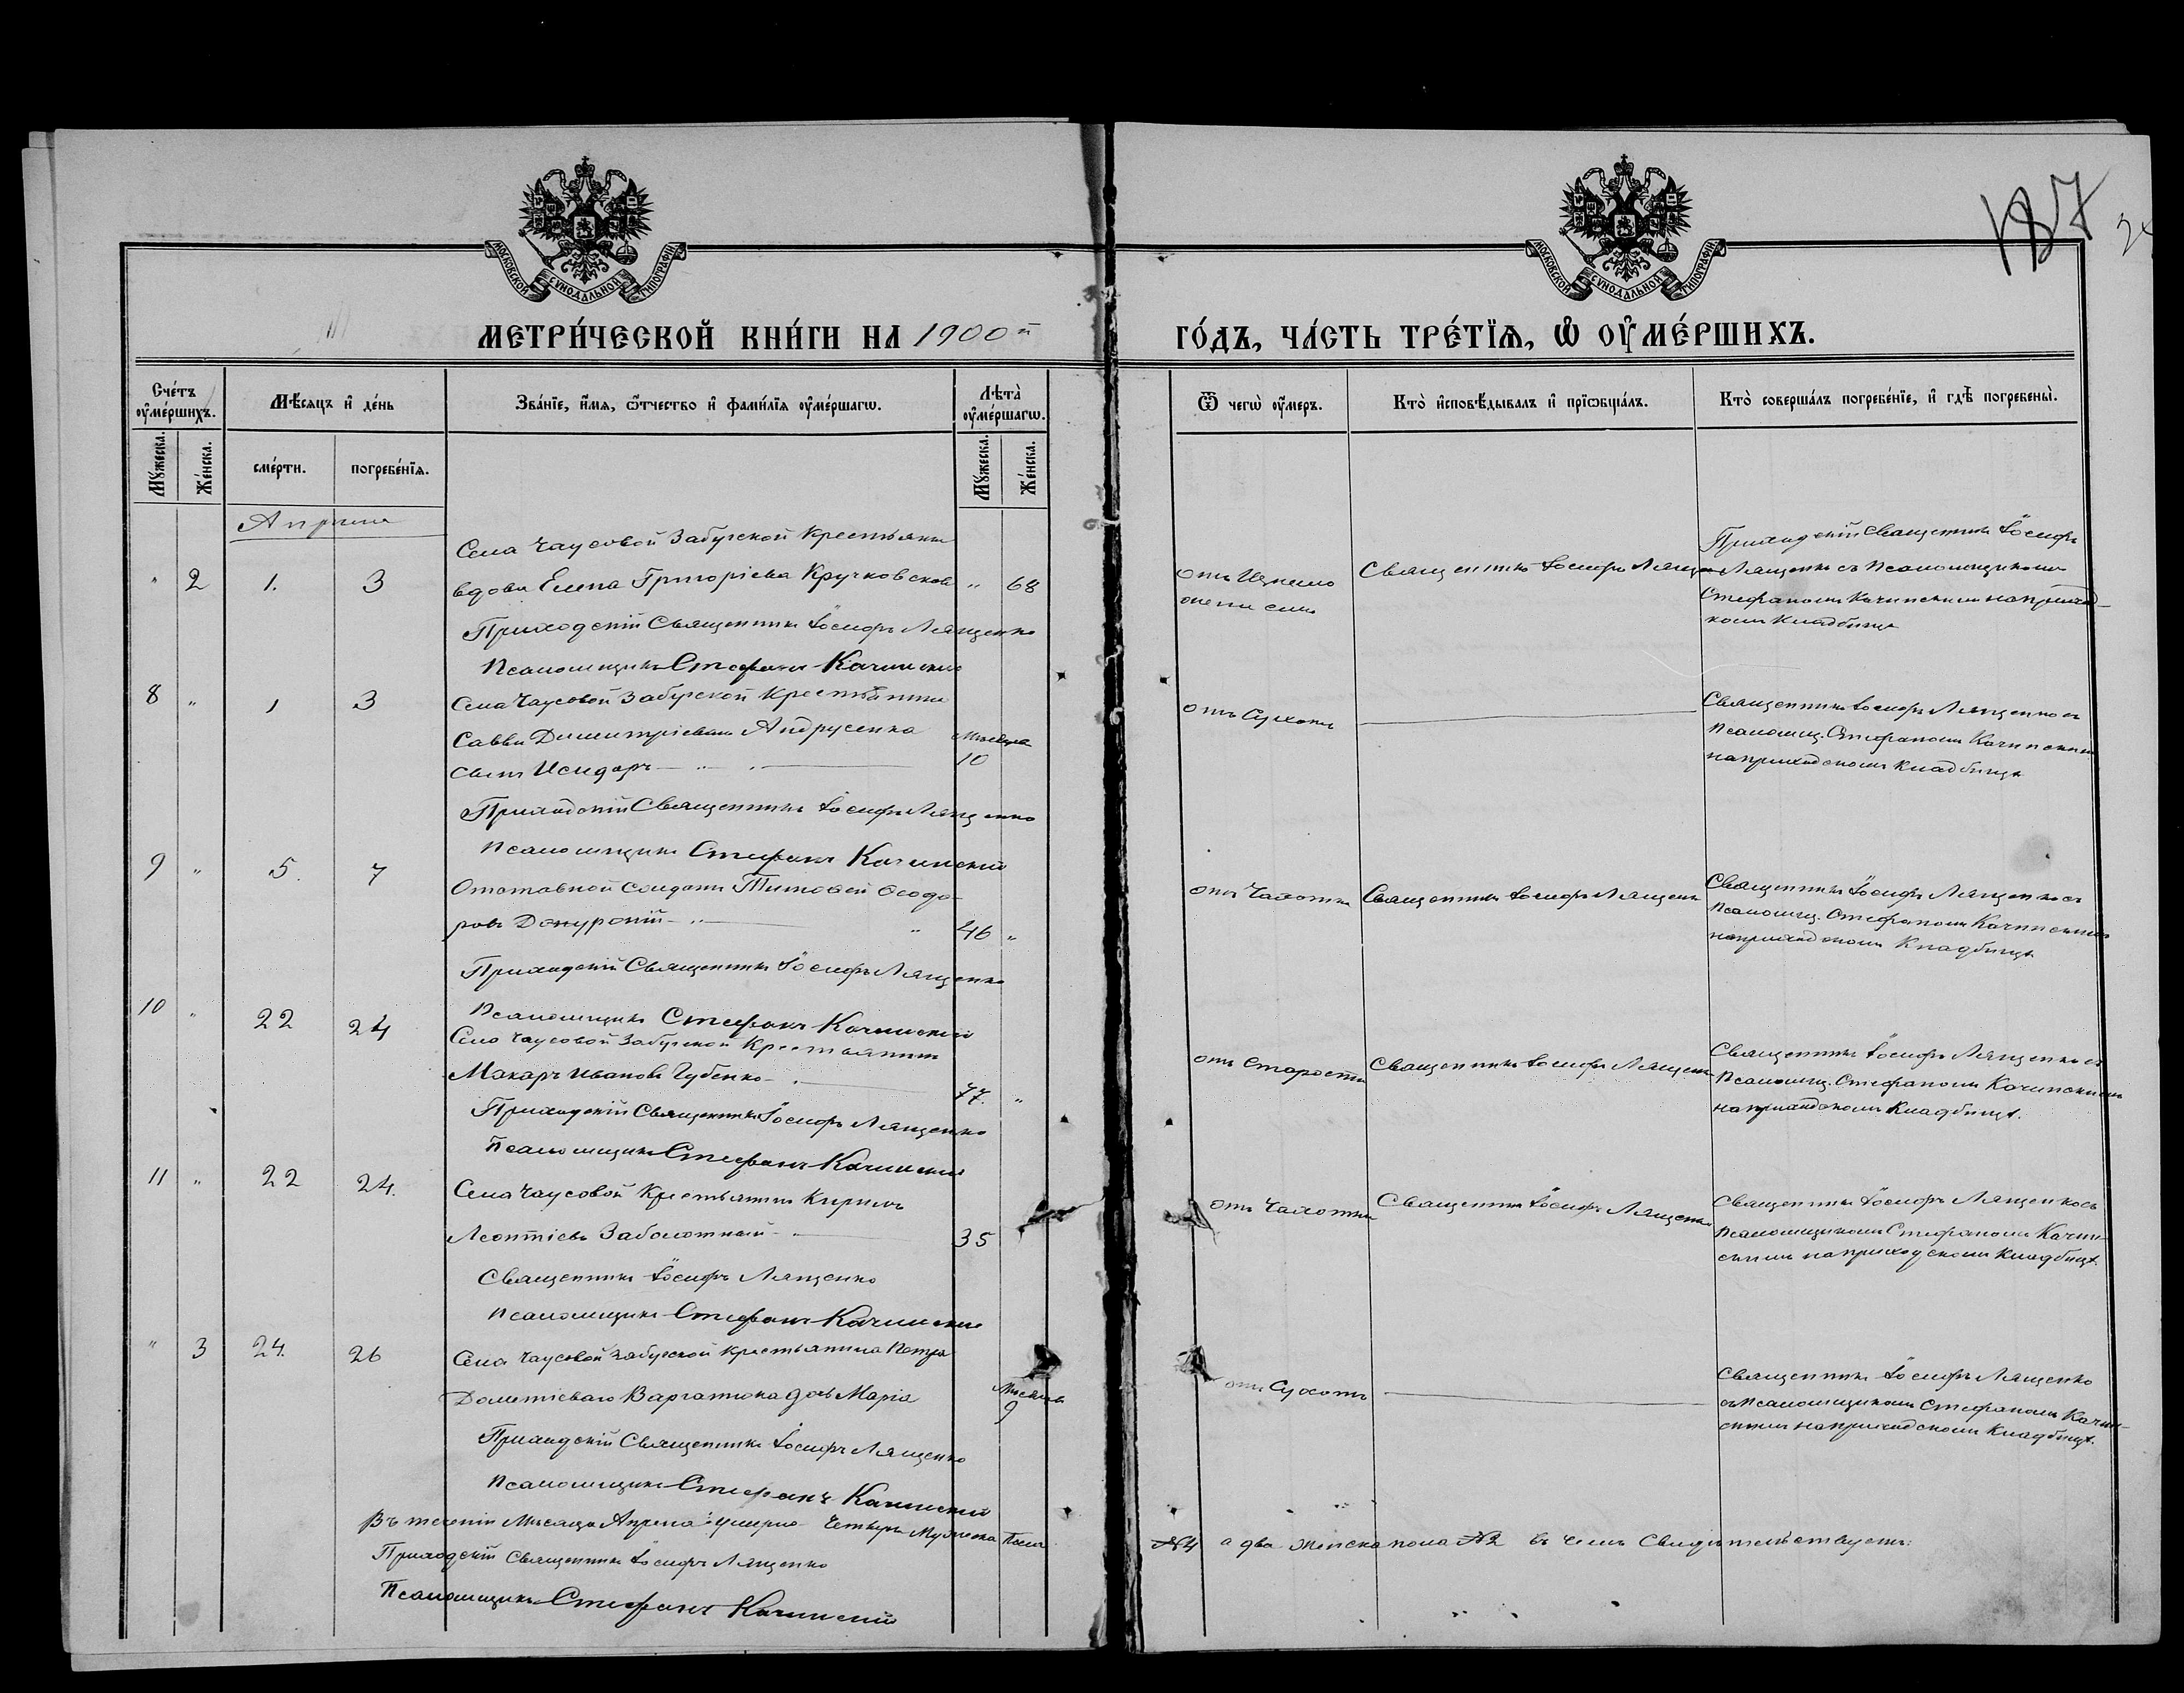 МОСКОВСКОЙ СУНОДАЛЬНОЙ ТИПОГРАФІИ
МОСКОВСКОЙ СУНОДАЛЬНОЙ ТИПОГРАФІИ
187
МЕТРИ́ЧЕСКОЙ КНИ́ГИ НА 1900й
ГО́ДЪ, ЧА́СТЬ ТРЕ́ТЇѦ, Ѡ҆ ОУ҆МЕ́РШИХЪ.
Сче́тъ оу҆ме́ршихъ.
Мꙋ́жеска.
Же́нска.
Мѣ́сяцъ и҆ де́нь
сме́рти.
погребе́нїѧ.
Зва́нїе, и҆́мѧ, ѻ҆́тчество и҆ фами́лїѧ оу҆ме́ршагѡ.
Лѣ̀та оу҆ме́ршагѡ.
Мꙋ́жеска.
Же́нска.
Ѿ чегѡ̀ оу҆́меръ.
Кто̀ и҆сповѣ́дывалъ и҆ прїѡбща́лъ.
Кто̀ соверша́лъ погребе́нїе, и҆ гдѣ̀ погребены̀.
Апрѣль
Села Чаусовой Забугской Крестьянка
" 2 1. 3 вдова Елена Григоріева Кручковская " 68
отъ Изнеможенія силъ
Священникъ Іосифъ Лященко
Приходскій Священникъ Іосифъ
Лященко съ Псаломщикомъ
Стефаномъ Качинскимъ на приход-
комъ Кладбищѣ
Приходскій Священникъ Іосифъ Лященко
Псаломщикъ Стефанъ Качинскій
8 " 1 3 Села Чаусовой Забугской Крестьянина
Саввы Димитріеваго Андрусенка Мѣсяцев
сынъ Исидоръ 10
отъ Сухотъ
Священникъ Іосифъ Лященко съ
Псаломщ. Стефаномъ Качинскимъ
на приходскомъ кладбищѣ
Приходскій Священникъ Іосифъ Лященко
Псаломщикъ Стефанъ Качинскій
9 " 5. 7
Отставной Солдатъ Тимофей Феодо-
ровъ Докурскій " 46 "
отъ Чахотки
Священникъ Іосифъ Лященко
Священникъ Іосифъ Лященко съ
Псаломщ. Стефаномъ Качинскимъ
на приходскомъ Кладбищѣ
Приходскій Священникъ Іосифъ Лященко
Псаломщикъ Стефанъ Качинскій
10 " 22 24
Села Чаусовой Забугской Крестьянинъ
Макаръ Ивановъ Губенко 77. "
отъ Старости
Священникъ Іосифъ Лященко
Священникъ Іосифъ Лященко съ
Псаломщ. Стефаномъ Качинскимъ
на приходскомъ Кладбищѣ.
Приходскій Священникъ Іосифъ Лященко
Псаломщикъ Стефанъ Качинскій
11 " 22 24. Села Чаусовой Крестьянинъ Кирилъ
Леонтіевъ Заболотный 35
отъ Чахотки
Священникъ Іосифъ Лященко
Священникъ Іосифъ Лященко съ
Псаломщикомъ Стефаномъ Качин-
скимъ на приходскомъ Кладбищѣ.
Священникъ Іосифъ Лященко
Псаломщикъ Стефанъ Качинскій
" 3 24. 26 Села Чаусовой Забугской Крестьянина Петра
Дометіеваго Варгатюка дочь Марія Мѣсяцевъ
9
отъ Сухотъ
Священникъ Іосифъ Лященко
съ Псаломщикомъ Стефаномъ Качин-
скимъ на приходскомъ Кладбищѣ.
Приходскій Священникъ Іосифъ Лященко
Псаломщикъ Стефанъ Качинскій
Въ теченіи Мѣсяца Апрѣля умерло Четыре Мужеска Пола
№4 а два женска пола №2 въ чемъ Свидѣтельствуемъ:
Приходскій Священникъ Іосифъ Лященко
Псаломщикъ Стефанъ Качинскій